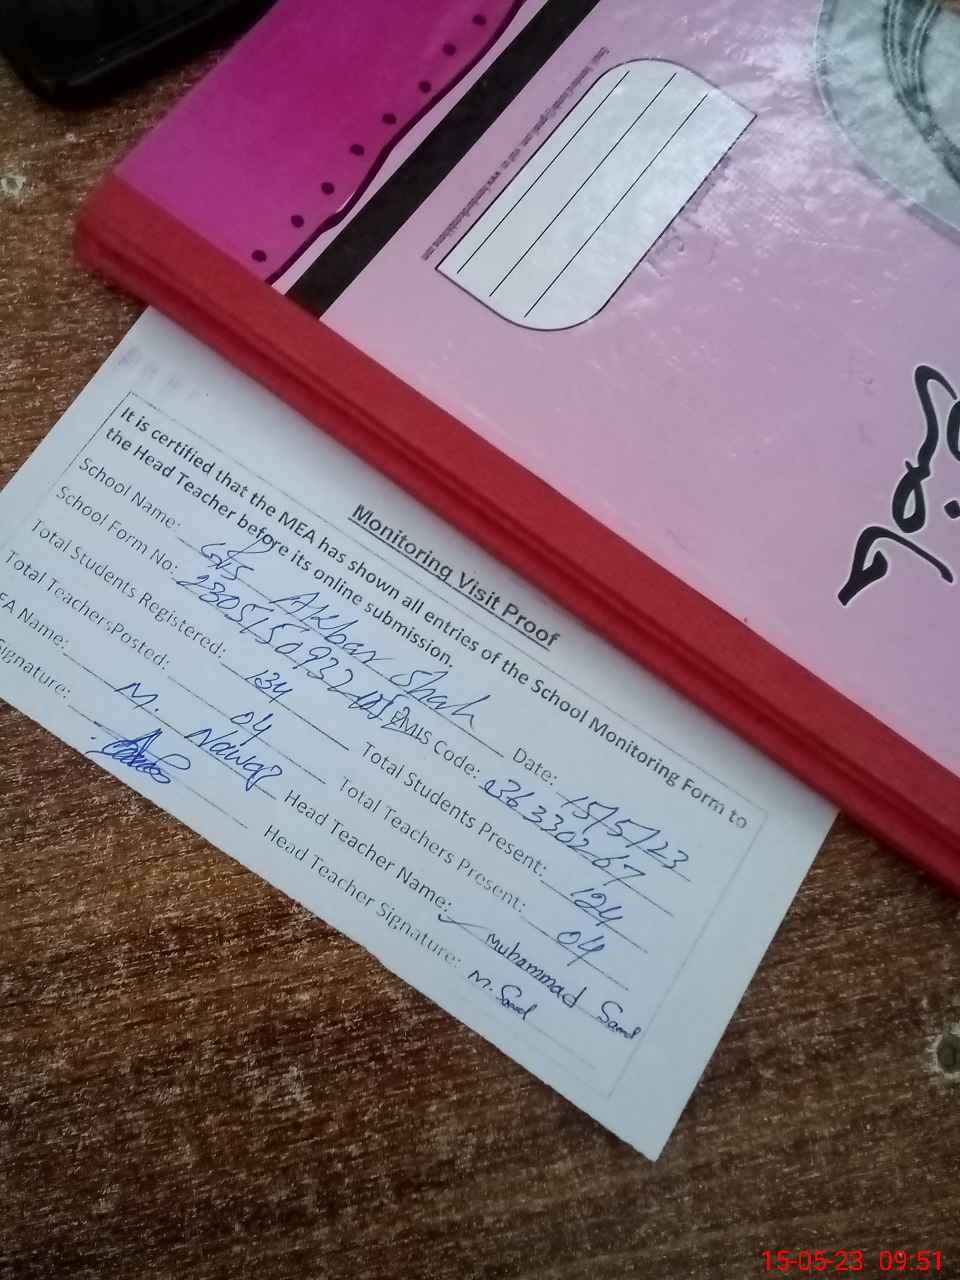 Monitoring Visit Proof
It is certified that the MEA has shown all entries of the School Monitoring Form to
the Head Teacher before its online submission.
School Name: GPS Akbar Shah Date: 15/5/23
School Form No: EMIS Code: 36330267
Total Students Registered: 134 Total Students Present: 124
Total TeachersPosted: 04 Total Teachers Present: 04
EA Name: M. Nawaz Head Teacher Name: Muhammad
Signature: Head Teacher Signature: M.
15-05-23 09:51